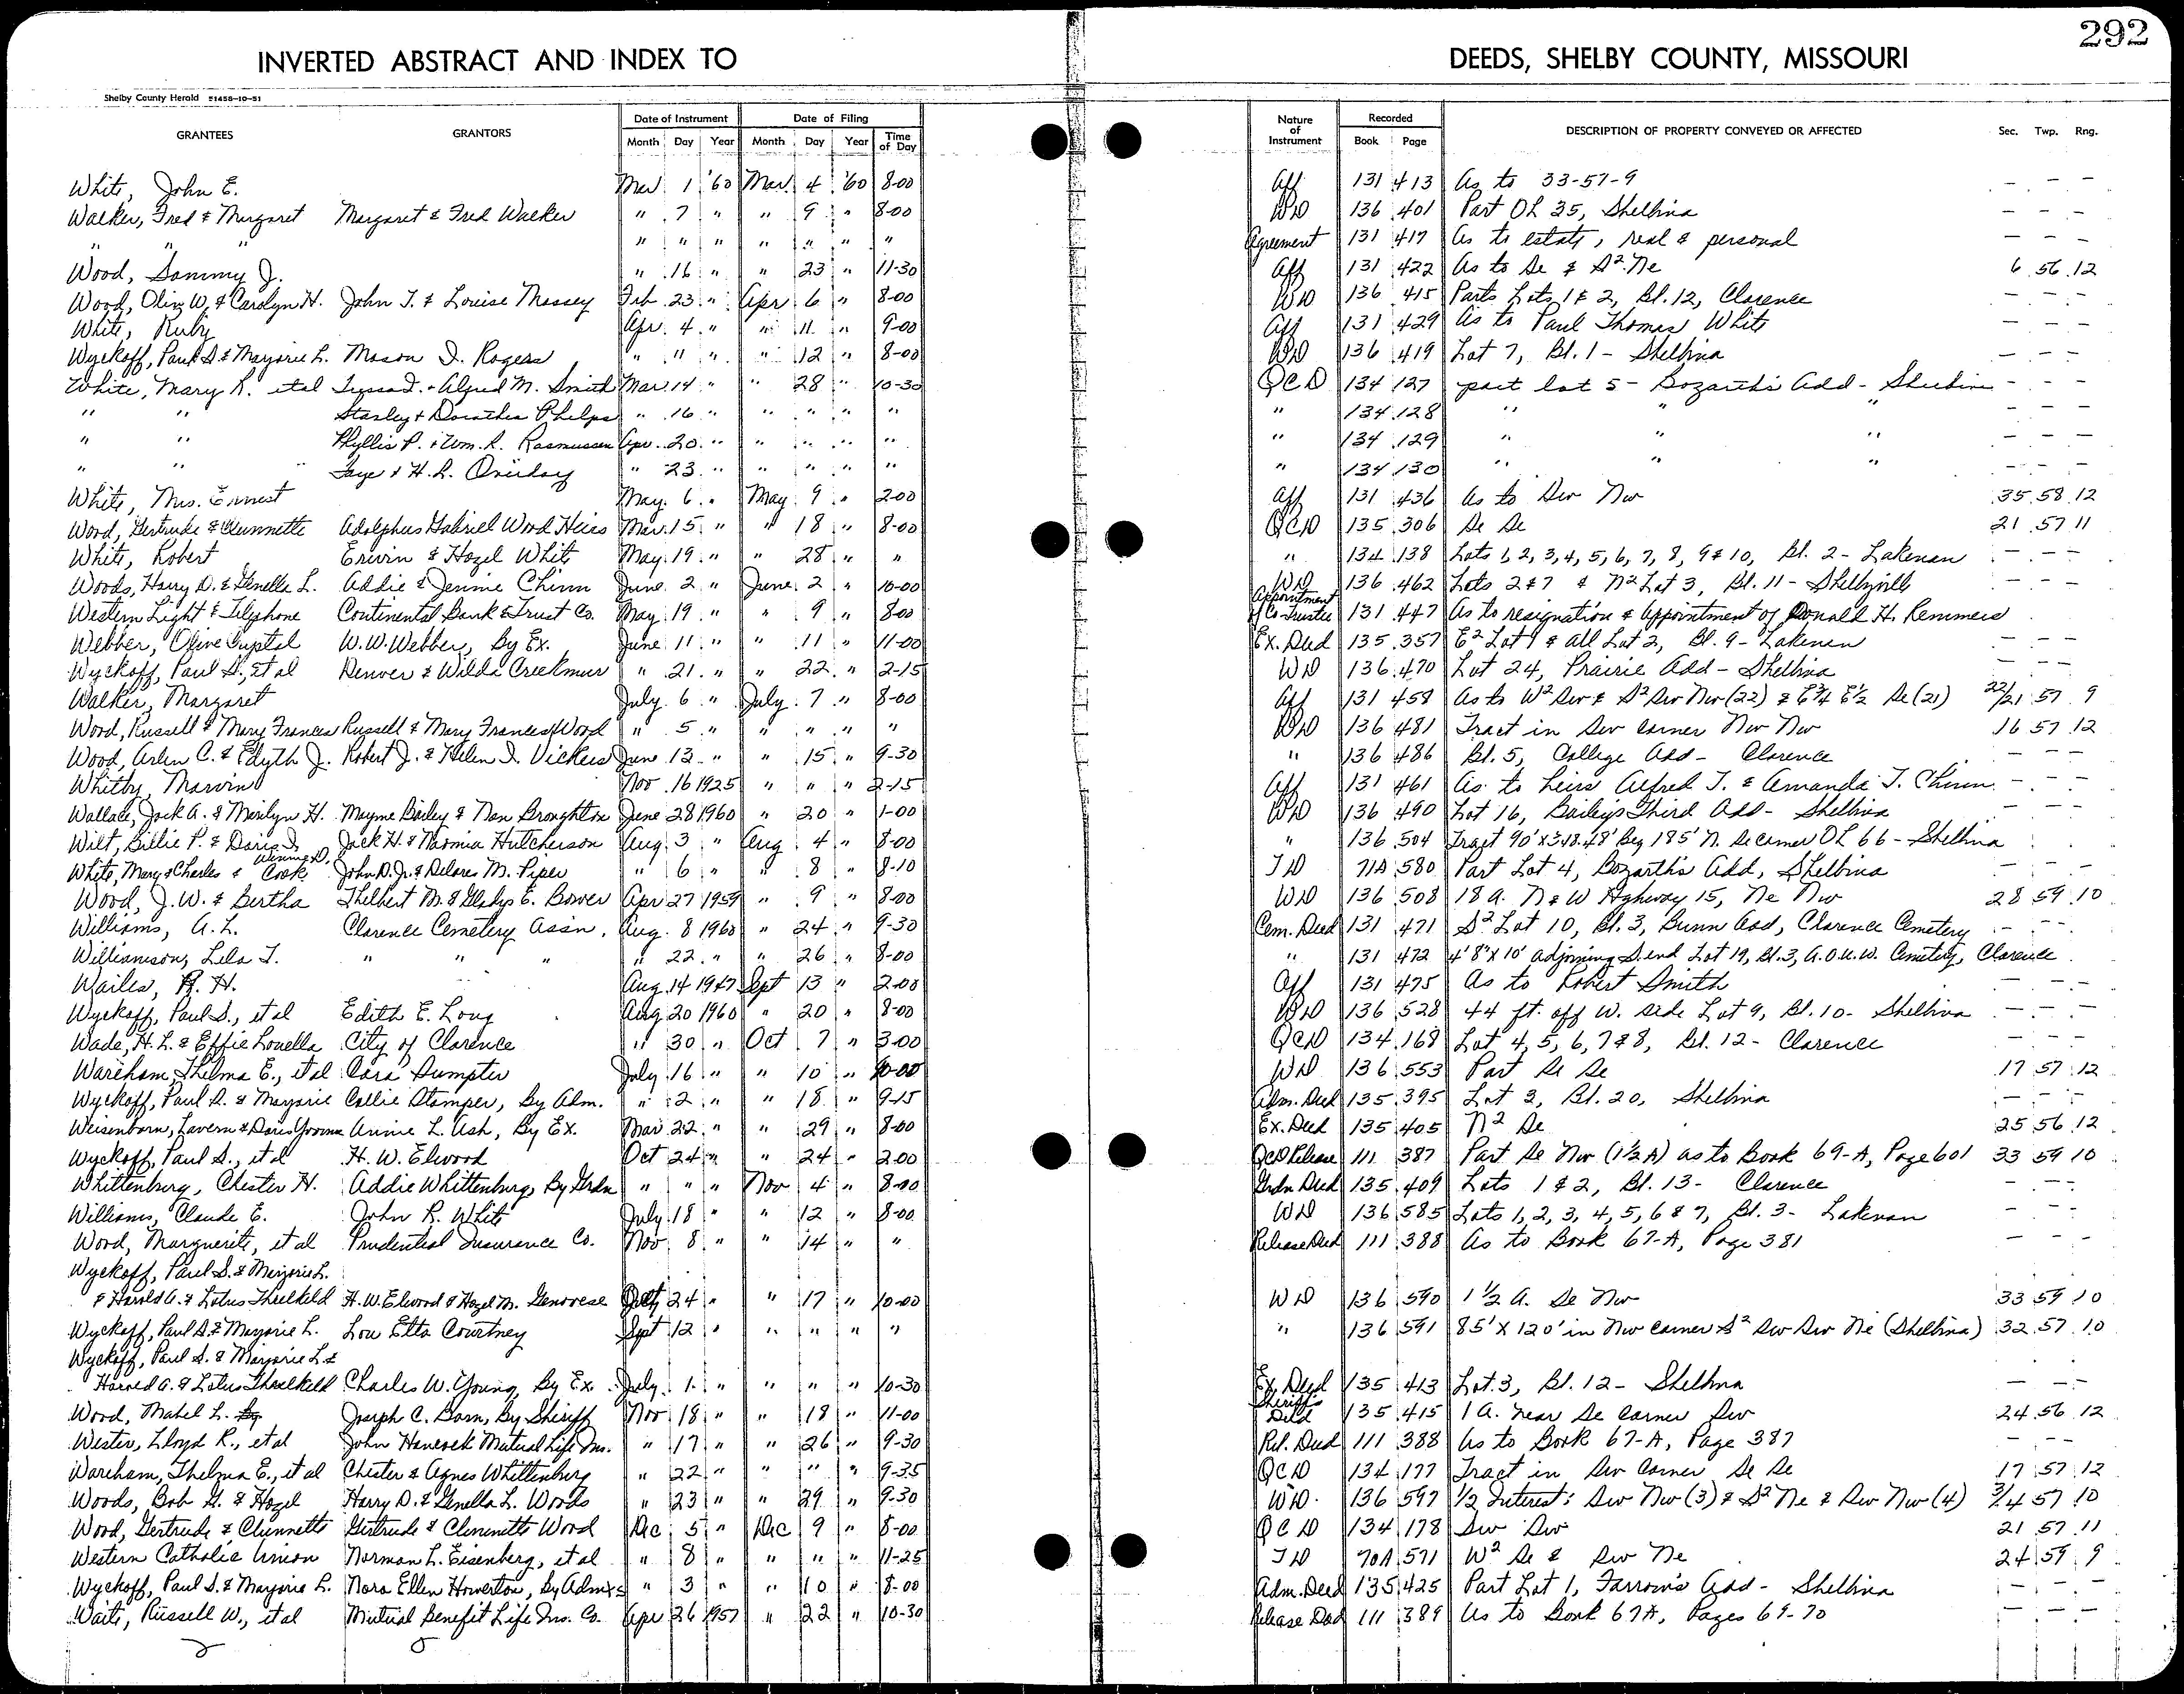 292
INVERTED ABSTRACT AND INDEX TO DEEDS, SHELBY COUNTY, MISSOURI
Shelby County Herald 51458-10-51
GRANTEES GRANTORS Date of Instrument Date of Filing Nature of Instrument Recorded DESCRIPTION OF PROPERTY CONVEYED OR AFFECTED Sec. Twp. Rng.
Month Day Year Month Day Year Time of Day Book Page
White, John E. Mar 1 '60 Mar 4 '60 8-00 Aff 131 413 As to 33-57-9 - - -
Walker, Fred & Margaret Margaret & Fred Walker " 7 " " 9 " 8-00 WD 136 401 Part OL 35, Shelbina - - -
" " " " " " " " " " Agreement 131 417 As to estate, real & personal - - -
Wood, Sammy J. " 16 " " 23 " 11-30 Aff 131 422 As to Se & S² Ne 6 56 12
Wood, Olin W. & Carolyn H. John T. & Louise Massey Feb 23 " Apr 6 " 8-00 WD 136 415 Parts Lots 1 & 2, Bl. 12, Clarence - - -
White, Ruby Apr. 4 " " 11 " 9-00 Aff 131 429 As to Paul Thomas White - - -
Wyckoff, Paul S. & Marjorie L. Mason D. Rogers " 11 " " 12 " 8-00 WD 136 419 Lot 7, Bl. 1 - Shelbina - - -
White, Mary R. et al & Alfred M. Smith Mar 14 " " 28 " 10-30 QCD 134 127 part lot 5 - Bozarth's Add - Shelbina - - -
" " Stanley & Dorothea Phelps " 16 " " " " " " 134 128 " " " - - -
" " Phyllis P. & Wm. R. Rasmussen Apr. 20 " " " " " " 134 129 " " " - - -
" " Faye & H. L. " 23 " " " " " " 134 130 " " " - - -
White, Mrs. Ernest May 6 " May 9 " 2-00 Aff 131 436 As to Sw Nw 35 58 12
Wood, Gertrude & Adolphus Gabriel Wood Heirs Mar. 15 " " 18 " 8-00 QCD 135 306 Se Se 21 57 11
White, Robert Erwin & Hazel White May 19 " " 28 " " " 134 138 Lots 1, 2, 3, 4, 5, 6, 7, 8, 9 & 10, Bl. 2 - Lakenan - - -
Woods, Harry D. & Genella L. Addie & Jennie Chinn June 2 " June 2 " 10-00 WD 136 462 Lots 2 & 7 & N² Lot 3, Bl. 11 - Shelbyville - - -
Western Light & Telephone Continental Bank & Trust Co. May 19 " " 9 " 8-00 Appointment of Co-Trustee 131 447 As to resignation & Appointment of Donald H. Remmers
Webber, Olive Crystal W. W. Webber, By Ex. June 11 " " 11 " 11-00 Ex. Deed 135 357 E² Lot 1 & all Lot 2, Bl. 9 - Lakenan - - -
Wyckoff, Paul S., et al Denver & Wilda Creekmur " 21 " " 22 " 2-15 WD 136 470 Lot 24, Prairie Add - Shelbina - - -
Walker, Margaret July 6 " July 7 " 8-00 Aff 131 458 As to W² Sw & S² Sw Nw (22) & E¾ E½ Se (21) 22/21 57 9
Wood, Russell & Mary Frances Russell & Mary Frances Wood " 5 " " " " " WD 136 481 Tract in Sw corner Nw Nw 16 57 12
Wood, Arlen C. & Edyth J. Robert J. & Helen I. Vickers June 13 " " 15 " 9-30 " 136 486 Bl. 5, College Add - Clarence - -
Whitby, Marvin Nov 16 1925 " " " 2-15 Aff 131 461 As to heirs Alfred T. & Amanda T. Chinn - - -
Wallace, Jack A. & Marilyn H. Mayme Bailey & Nan Broughton June 28 1960 " 20 " 1-00 WD 136 490 Lot 16, Bailey's Third Add - Shelbina - - -
Wilt, Billie P. & Doris I. Jack H. & Naomia Hutcherson Aug 3 " Aug 4 " 8-00 " 136 504 Tract 90'x348.48' Beg 185' N. Se corner OL 66 - Shelbina
White, Mary & Charles & Winnie D. Cook John D. Jr. & Delores M. Piper " 6 " " 8 " 8-10 TD 71A 580 Part Lot 4, Bozarth's Add, Shelbina - - -
Wood, J. W. & Bertha Thelbert M. & Gladys E. Bower Apr 27 1959 " 9 " 8-00 WD 136 508 18 A. N & W Highway 15, Ne Nw 28 59 10
Williams, A. L. Clarence Cemetery Assn. Aug. 8 1960 " 24 " 9-30 Cem. Deed 131 471 S² Lot 10, Bl. 3, Bunn Add, Clarence Cemetery - - -
Williamson, Lela T. " " " " 22 " " 26 " 8-00 " 131 472 4'8" x 10' adjoining S. end Lot 19, Bl. 3, A.O.U.W. Cemetery, Clarence
Wailes, R. H. Aug. 14 1947 Sept 13 " 2-00 Aff 131 475 As to Robert Smith - - -
Wyckoff, Paul S., et al Edith E. Long Aug 20 1960 " 20 " 8-00 WD 136 528 44 ft. off W. side Lot 9, Bl. 10 - Shelbina - - -
Wade, H. L. & Effie Louella City of Clarence " 30 " Oct 7 " 3-00 QCD 134 168 Lot 4, 5, 6, 7 & 8, Bl. 12 - Clarence - - -
Wareham, Thelma E., et al Cara Sumpter July 16 " " 10 " 10-00 WD 136 553 Part Se Se 17 57 12
Wyckoff, Paul S. & Marjorie Callie Stamper, By Adm. " 2 " " 18 " 9-15 Adm. Deed 135 395 Lot 3, Bl. 20, Shelbina - - -
Weisenborn, Lavern & Doris Yvonne Annie L. Ash, By Ex. Mar 22 " " 29 " 8-00 Ex. Deed 135 405 N² Se 25 56 12
Wyckoff, Paul S., et al H. W. Elwood Oct 24 " " 24 " 2-00 QCD Release 111 387 Part Se Nw (1½ A) as to Book 69-A, Page 601 33 59 10
Whittenburg, Chester H. Addie Whittenburg, By Grdn " " " Nov 4 " 8-00 Grdn Deed 135 409 Lots 1 & 2, Bl. 13 - Clarence - - -
Williams, Claude E. John R. White July 18 " " 12 " 8-00 WD 136 585 Lots 1, 2, 3, 4, 5, 6 & 7, Bl. 3 - Lakenan - - -
Wood, Marguerite, et al Prudential Insurance Co. Nov 8 " " 14 " " Release Deed 111 388 As to Book 67-A, Page 381 - - -
Wyckoff, Paul S. & Marjorie L.
& Harold A. & Lotus Threlkeld H. W. Elwood & Hazel M. Genovese Oct 24 " " 17 " 10-00 WD 136 590 1½ A. Se Nw 33 59 10
Wyckoff, Paul S. & Marjorie L. Lou Etta Courtney Sept 12 " " " " " " 136 591 85' X 120' in Nw corner S² Sw Sw Ne (Shelbina) 32 57 10
Wyckoff, Paul S. & Marjorie L. &
Harold A. & Lotus Threlkeld Charles W. Young, By Ex. July 1 " " " " 10-30 Ex. Deed 135 413 Lot 3, Bl. 12 - Shelbina - - -
Wood, Mabel L. Joseph C. Born, By Sheriff Nov 18 " " 18 " 11-00 Sheriff's Deed 135 415 1 A. near Se corner Sw 24 56 12
Wester, Lloyd R., et al John Hancock Mutual Life Ins. " 17 " " 26 " 9-30 Rel. Deed 111 388 As to Book 67-A, Page 387 - - -
Wareham, Thelma E., et al Chester & Agnes Whittenburg " 22 " " " " 9-35 QCD 134 177 Tract in Sw corner Se Se 17 57 12
Woods, Bob G. & Hazel Harry D. & Genella L. Woods " 23 " " 29 " 9-30 WD. 136 597 ½ Interest: Sw Nw (3) & S² Ne & Sw Nw (4) 3/4 57 10
Wood, Gertrude & Gertrude & Wood Dec 5 " Dec 9 " 8-00 QCD 134 178 Sw Sw 21 57 11
Western Catholic Union Norman L. Eisenberg, et al " 8 " " " " 11-25 TD 70A 571 W² Se & Sw Ne 24 59 9
Wyckoff, Paul S. & Marjorie L. Nora Ellen Howerton, By Admxs " 3 " " 10 " 8-00 Adm. Deed 135 425 Part Lot 1, Farrow's Add - Shelbina - - -
Waite, Russell W., et al Mutual Benefit Life Ins. Co. Apr 26 1957 " 22 " 10-30 Release Deed 111 389 As to Book 67A, Pages 69-70 - - -